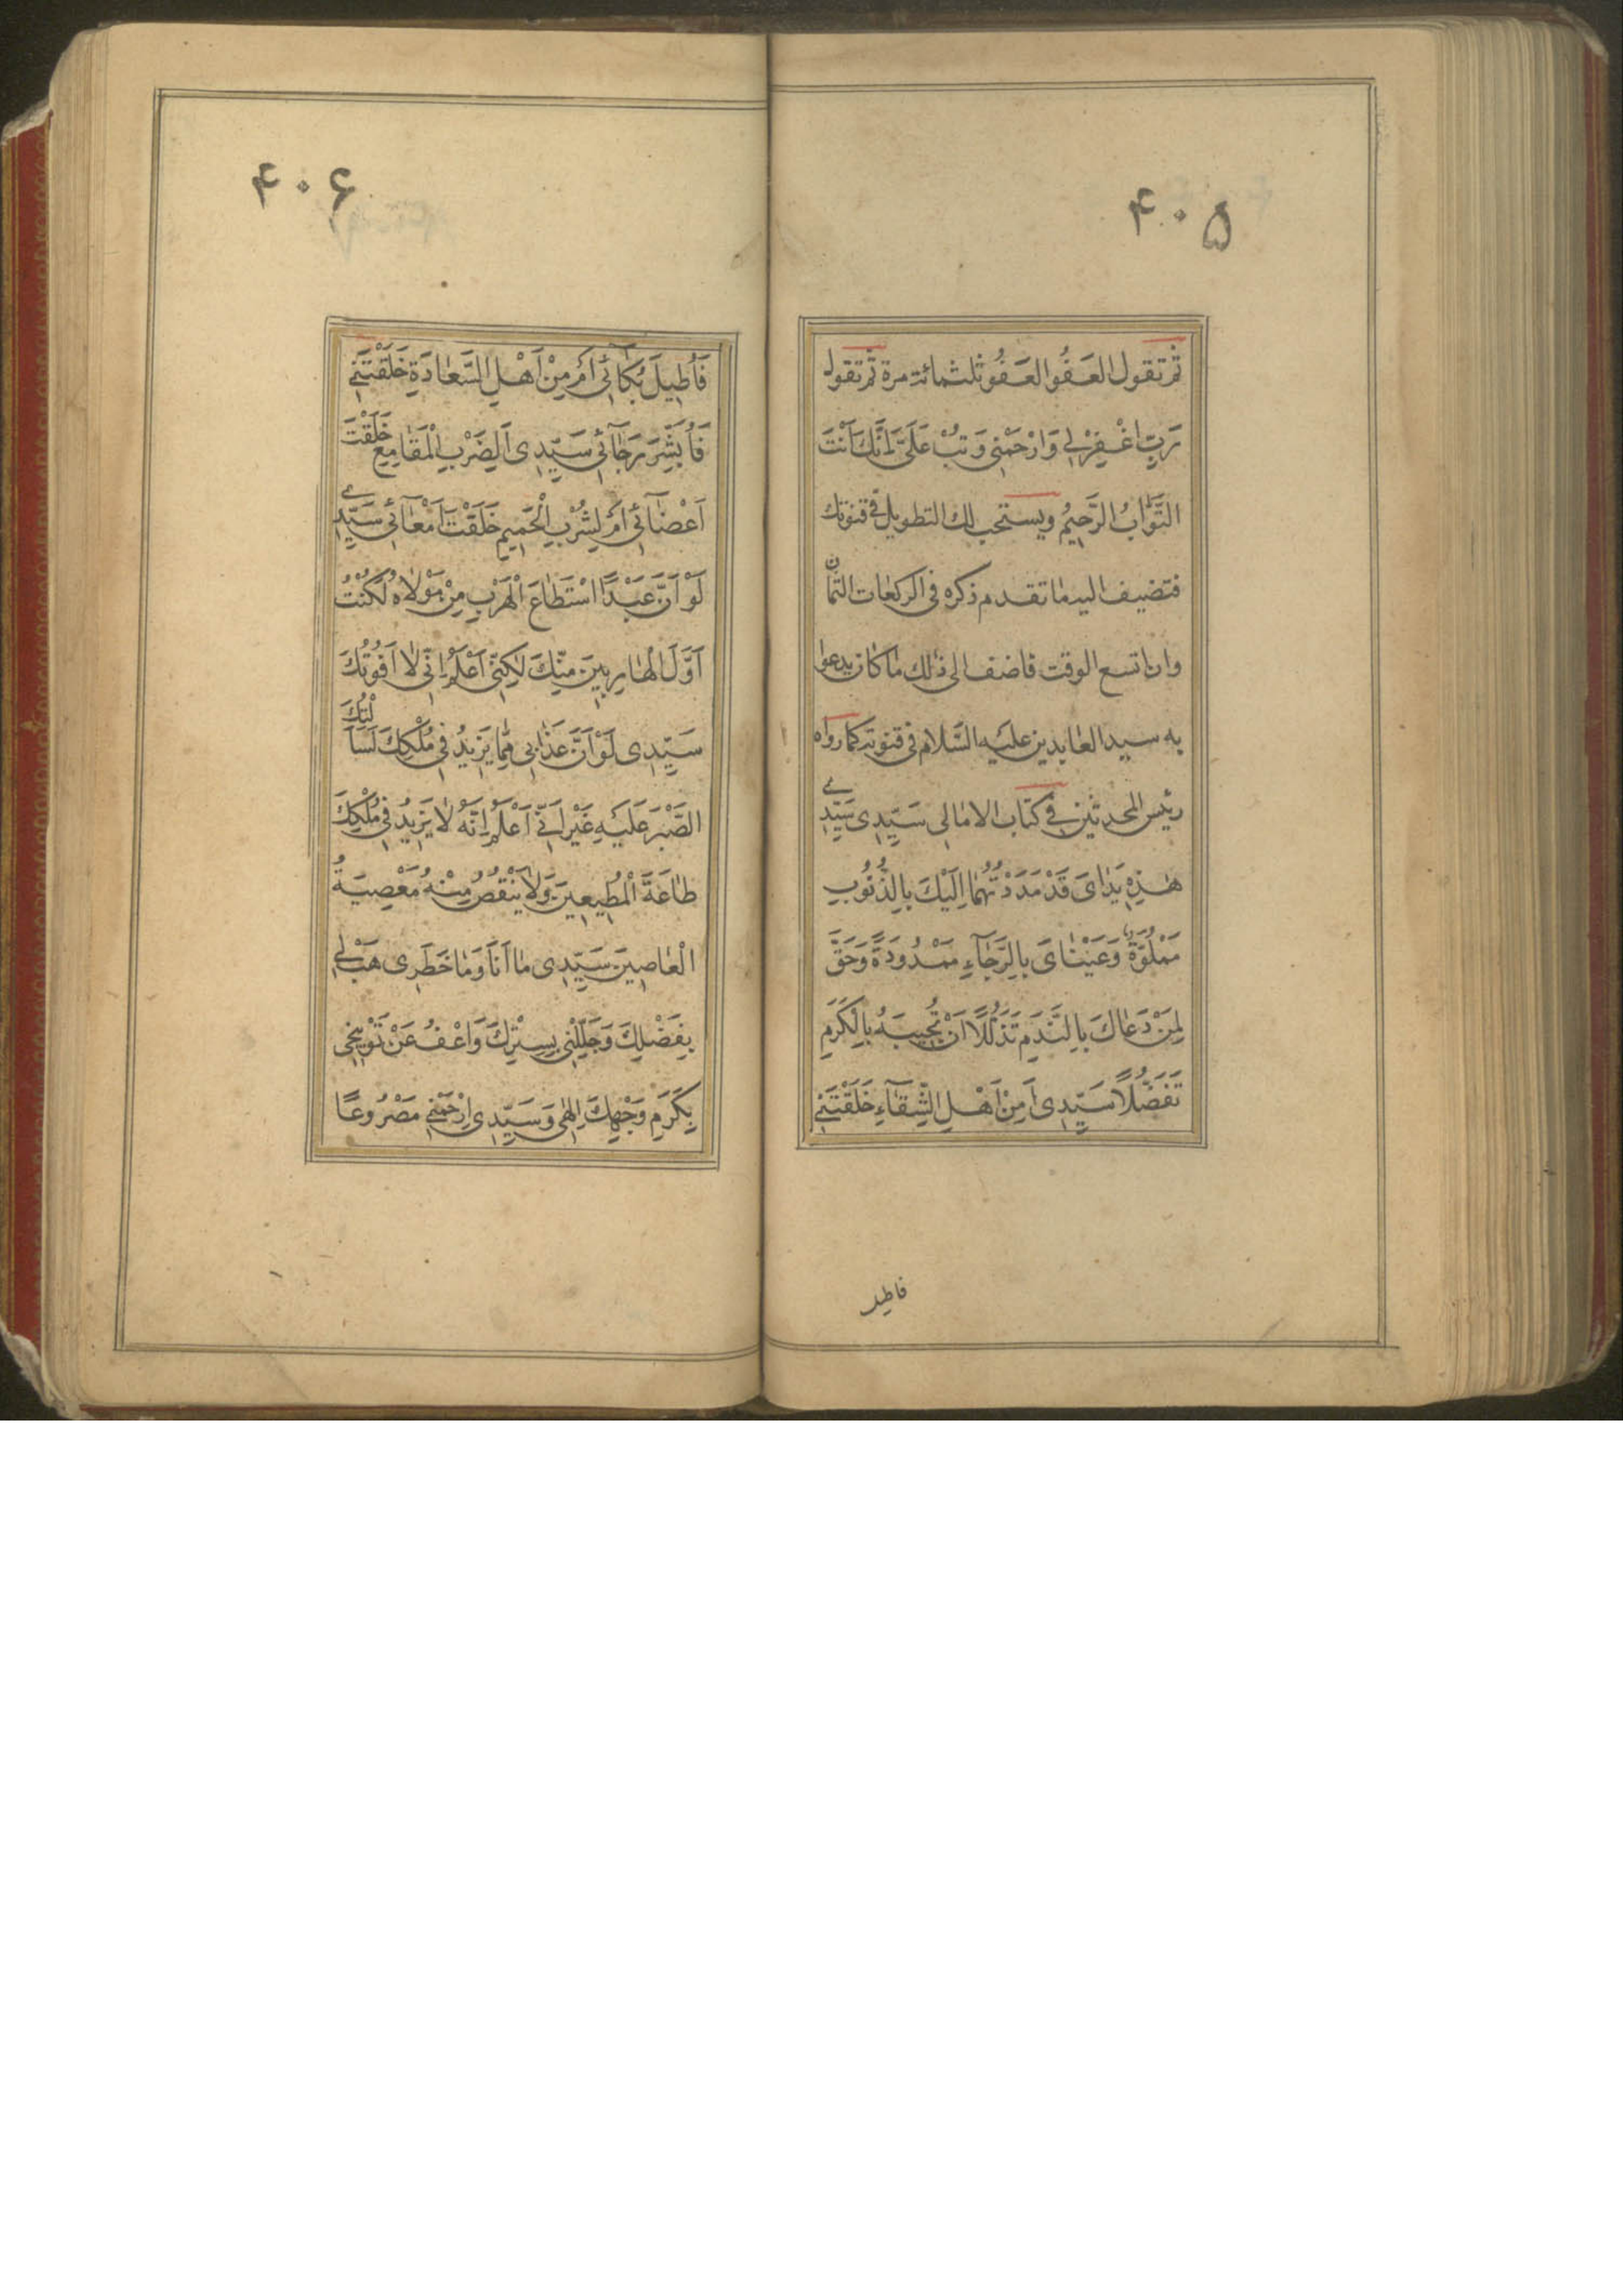 ۴۰۵
ثم تقول العَفْوَ العَفْوَ ثلثمائة مرة ثم تقول
رَبِّ اغْفِرْ لِي وَارْحَمْنِي وَتُبْ عَلَيَّ اِنَّكَ اَنْتَ
التَّوَّابُ الرَّحِيمُ ويستحب لك التطويل في قنوتك
فتضيف اليه ما تقدم ذكره في الركعات الثمان
وان اتسع الوقت فاضف الى ذلك ما كان يدعوا
به سيد العابدين عليه السَّلام في قنوته كما رواه
رئيس المحدثين في كتاب الامالى سَيِّدِى سَيِّدِى
هٰذِهِ يَدَاىَ قَدْ مَدَدْتُهُمَا اِلَيْكَ بِالذُّنُوبِ
مَمْلُوَّةً وَعَيْنَاىَ بِالرَّجَاءِ مَمْدُودَةً وَحَقَّ
لِمَنْ دَعَاكَ بِالنَّدَمِ تَذَلُّلًا اَنْ تُجِيبَهُ بِالْكَرَمِ
تَفَضُّلًا سَيِّدِى اَمِنْ اَهْلِ الشِّقَاءِ خَلَقْتَنِي
فاطيل
۴۰۶
فَاُطِيلَ بُكَائِي اَمْ مِنْ اَهْلِ السَّعَادَةِ خَلَقْتَنِي
فَاُبَشِّرَ رَجَائِي سَيِّدِى اَلِضَرْبِ الْمَقَامِعِ خَلَقْتَ
اَعْضَائِي اَمْ لِشُرْبِ الْحَمِيمِ خَلَقْتَ اَمْعَائِي سَيِّدِي
لَوْ اَنَّ عَبْدًا اسْتَطَاعَ الْهَرَبَ مِنْ مَوْلَاهُ لَكُنْتُ
اَوَّلَ الْهَارِبِينَ مِنْكَ لٰكِنِّي اَعْلَمُ اِنِّي لَا اَفُوتُكَ
سَيِّدِى لَوْ اَنَّ عَذَابِي مِمَّا يَزِيدُ فِي مُلْكِكَ لَسَاَلْتُكَ
الصَّبْرَ عَلَيْهِ غَيْرَ اَنِّي اَعْلَمُ اِنَّهُ لَا يَزِيدُ فِي مُلْكِكَ
طَاعَةُ الْمُطِيعِينَ وَلَا يَنْقُصُ مِنْهُ مَعْصِيَةُ
الْعَاصِينَ سَيِّدِى مَا اَنَا وَمَا خَطَرِى هَبْ لِي
بِفَضْلِكَ وَجَلِّلْنِي بِسِتْرِكَ وَاعْفُ عَنْ تَوْبِيخِي
بِكَرَمِ وَجْهِكَ اِلٰهِي وَسَيِّدِى اِرْحَمْنِي مَصْرُوعًا